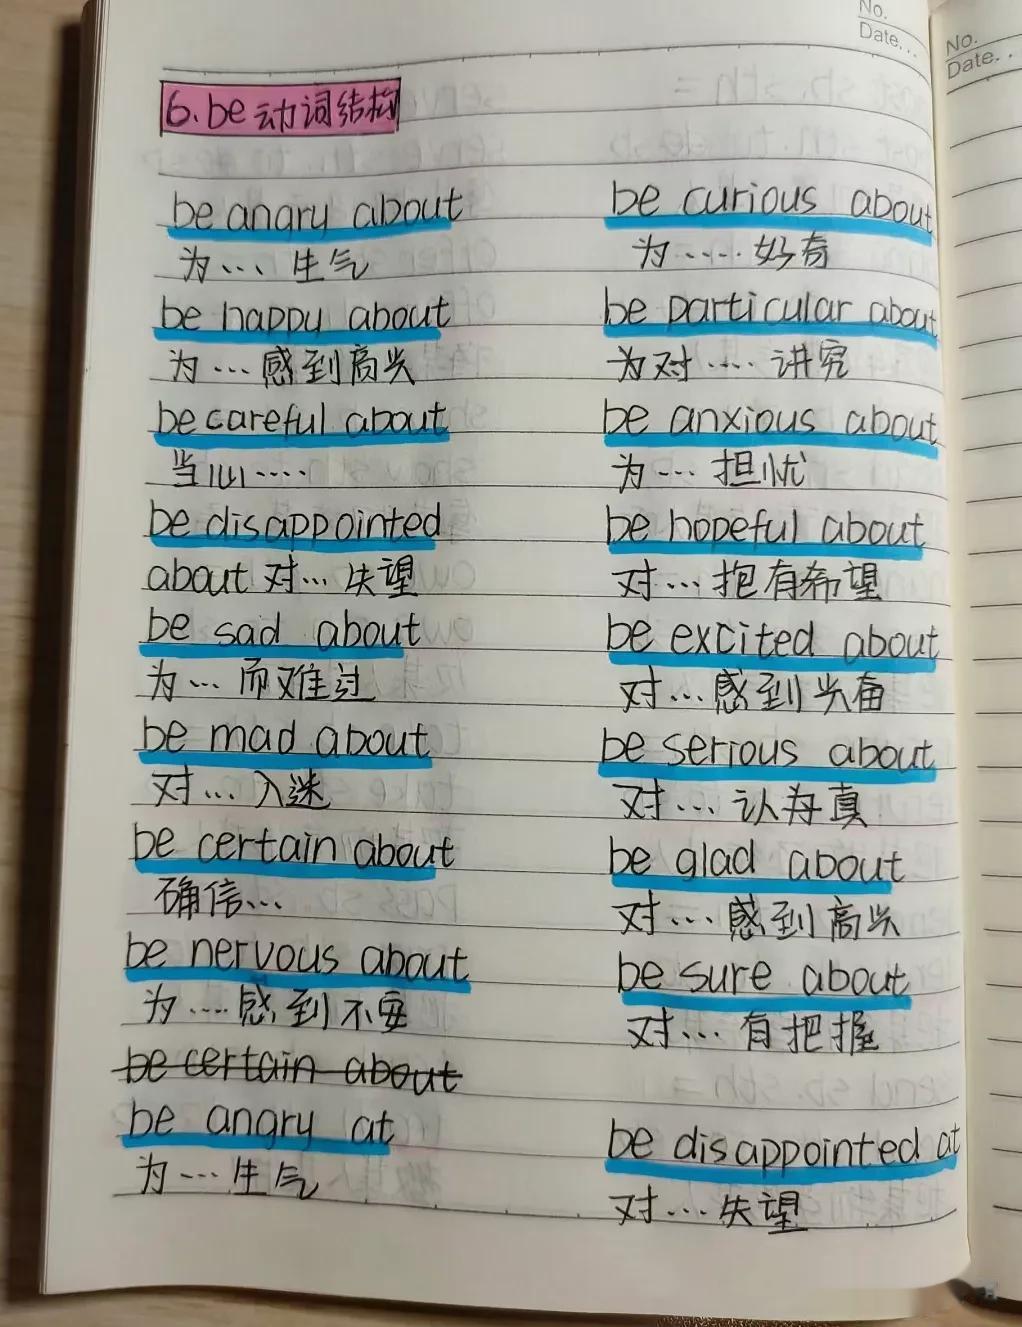 No.
Date...
No.
Date...
6.be动词结构
be angry about
为… 生气
be happy about
为…感到高兴
be careful about
当心····
be disappointed
about 对… 失望
be sad about
为… 而难过
be mad about
对… 入迷
be certain about
确信…
be nervous about
为····感到不安
be certain about
be angry at
为…生气
be curious about
为·····好奇
be particular about
为对····讲究
be anxious about
为…担忧
be hopeful about
对…抱有希望
be excited about
对…感到兴奋
be serious about
对…认为真
be glad about
对…感到高兴
be sure about
对…有把握
be disappointed at
对…失望